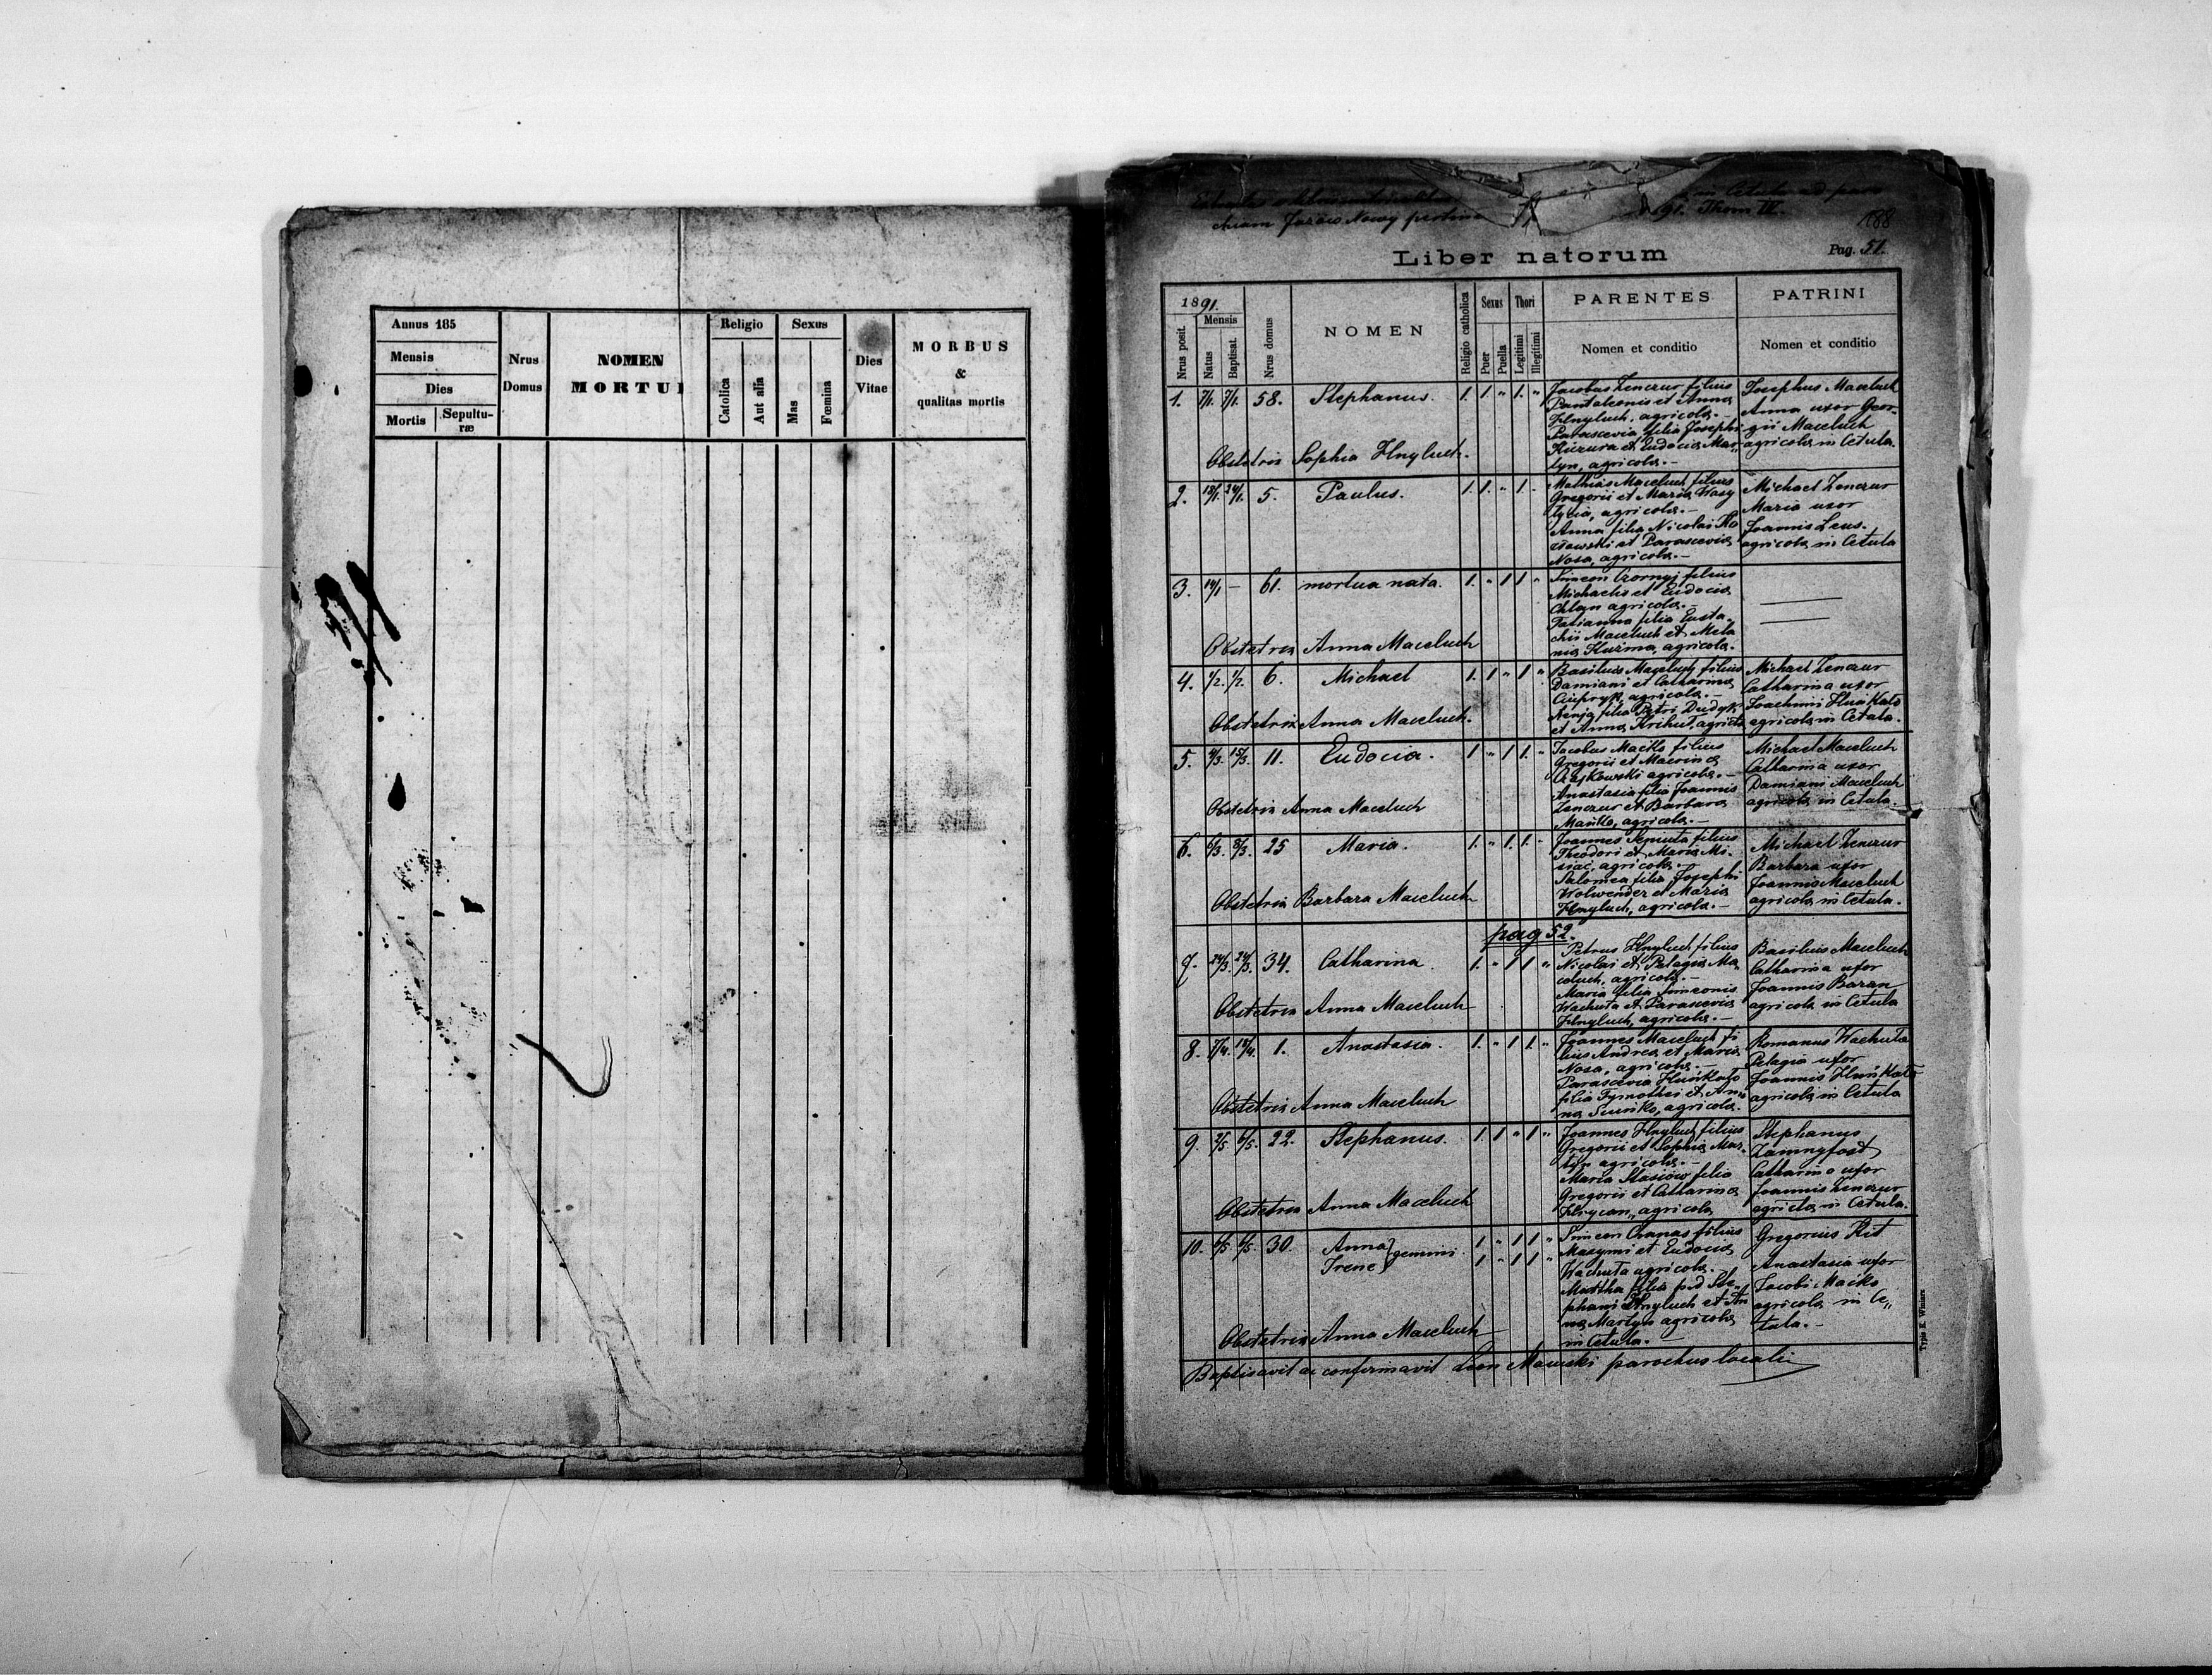 Annus 185
Mensis
Dies
Mortis
Sepultu-
ræ
Nrus
Domus
NOMEN
MORTUI
Religio
Catolica
Aut alia
Sexus
Mas
Fœmina
Dies
Vitae
MORBUS
&
qualitas mortis
in Cetula ad paro
chiam Jazów Nowy
Thom IV.
188
Liber natorum
Pag. 51.
1891.
Nrus posit.
Mensis
Natus
Baptisat.
Nrus domus
NOMEN
Religio catholica
Sexus
Puer
Puella
Thori
Legitimi
Illegitimi
PARENTES
Nomen et conditio
PATRINI
Nomen et conditio
1. 7/1. 7/1. 58. Stephanus. 1. 1 " 1. "
Jacobus Zenczur filius
Pantaleonis et Anna
Hnyluch, agricola.-
Parascevia filia Josephi
Kiczura et Eudocia Mar-
tyn, agricola.-
Josephus Maceluch
Anna uxor Geor-
gii Maceluch
agricola in Cetula.
Obstetrix Sophia Hnyluch.
2. 18/1. 24/1. 5. Paulus. 1. 1. " 1. "
Mathias Maceluch filius
Gregorii et Maria Wasy
agricola.-
Anna filia Nicolai Ko
et Parascevia
Nosa, agricola.-
Michael Zenczur
Maria uxor
Joannis Leus.
agricola in Cetula
3. 19/1 - 61. mortua nata. 1. " 1 1 "
Simeon Czornyj filius
Michaelis et Eudocia
Chlan agricola.-
Tatianna filia Eusta-
chii Maceluch et Mela
nia Kuzma, agricola.
Obstetrix Anna Maceluch
4. 1/2. 1/2. 6. Michael 1. 1 " 1 "
Basilius Maceluch filius
Damiani et Catharina
agricola.-
filia Petri Dudyk
et Anna agricola
Michael Zenczur
Catharina uxor
Joachimi Hunkato
agricola in Cetula.
Obstetrix Anna Maceluch.
5. 4/3. 15/3. 11. Eudocia. 1 " 1 1. "
Jacobus Maćko filius
Gregorii et Macrina
Czajkowski agricola.-
Anastasia filia Joannis
Zenczur et Barbara
agricola.-
Michael Maceluch
Catharina uxor
Damiani Maceluch
agricola in Cetula.
Obstetrix Anna Maceluch
6. 6/3. 8/3. 25 Maria. 1. " 1. 1. "
Joannes filius
Theodori et Maria Mi-
siać, agricola.-
Salomea filia Josephi
Wolwender et Maria
Hnyluch, agricola.-
Michael Zenczur
Barbara uxor
Joannis Maceluch
agricola in Cetula.
Obstetrix Barbara Maceluch
pag 52.
7. 24/3. 24/3. 34. Catharina. 1. " 1 1 "
Petrus Hnyluch filius
Nicolai et Pelagia Ma
celuch, agricola.-
Maria filia Simeonis
Wachuta et Parascevia
Hnyluch, agricola.-
Basilius Maceluch
Catharina uxor
Joannis Baran
agricola in Cetula
Obstetrix Anna Maceluch
8. 7/4. 12/4. 1. Anastasia. 1. " 1 1. "
Joannes Maceluch fi
lius Andrea et Maria
Nosa, agricola.-
Parascevia Hunkato
filia Tymothei et An-
na agricola.
Romanus Wachuta
Pelagia uxor
Joannis Hunkato
agricola in Cetula
Obstetrix Anna Maceluch
9. 2/5 6/5. 22. Stephanus. 1. 1 " 1 "
Joannes Hnyluch filius
Gregorii et Sophia Mar-
tyn agricola.-
Maria Stasiów filia
Gregorii et Catharina
Hrycan, agricola
Stephanus
Catharina uxor
Joannis Zenczur
agricola in Cetula.
Obstetrix Anna Maceluch
10. 6/5 6/5. 30. Anna } gemini. 1 " 1 1 "
Irene 1 " 1 1 "
Simeon Chanas filius
Maxymi et Eudocia
Wachuta agricola.
Martha filia Ste-
phani Hnyluch et An
na Martyn agricola
in Cetula.-
Gregorius Kit
Anastasia uxor
Jacobi Maćko
agricola in Ce"
tula.-
Obstetrix Anna Maceluch
Baptisavit ac confirmavit Leon parochus locali
Typis E. Winiarz